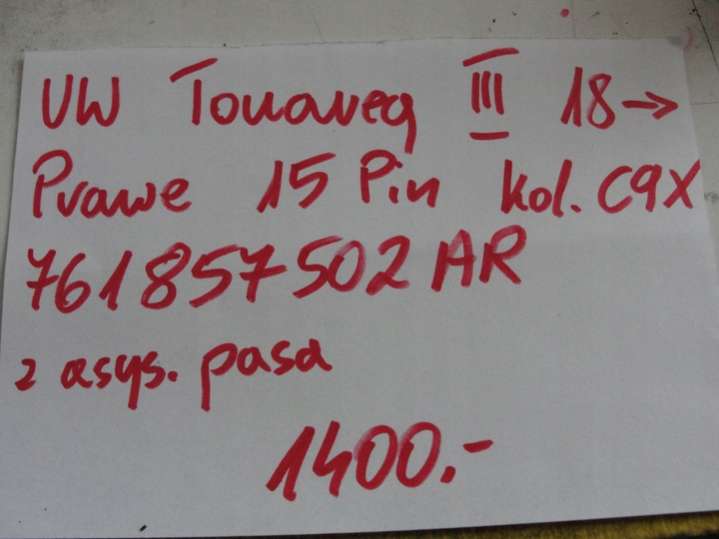 VW Touareg III 18→
Prawe 15 Pin kol. C9X
761857502AR
z asys. pasa
1400.-